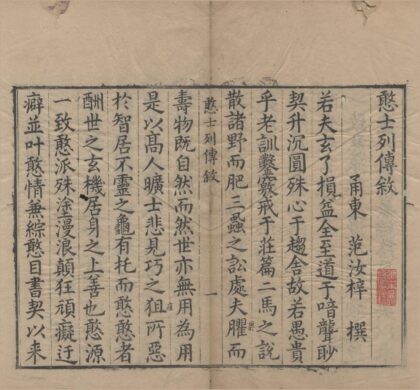 憨士列傳敘
甬東 范汝梓 撰
若夫玄了損益全至道于喑聾眇
契升沉圓殊心于趨舍故若愚貴
乎老訓鑿竅戒于莊篇二馬之說
散諸野而肥三蝨之訟處夫臞而
憨士列傳敘 一
壽物既自然而然世亦無用為用
是以高人曠士悲見巧之狙所惡
於智居不靈之龜有托而憨憨者
酬世之玄機居身之上善也憨源
一致憨派殊塗漫浪顛狂頑癡迂
癖並叶憨情兼綜憨目書契以來